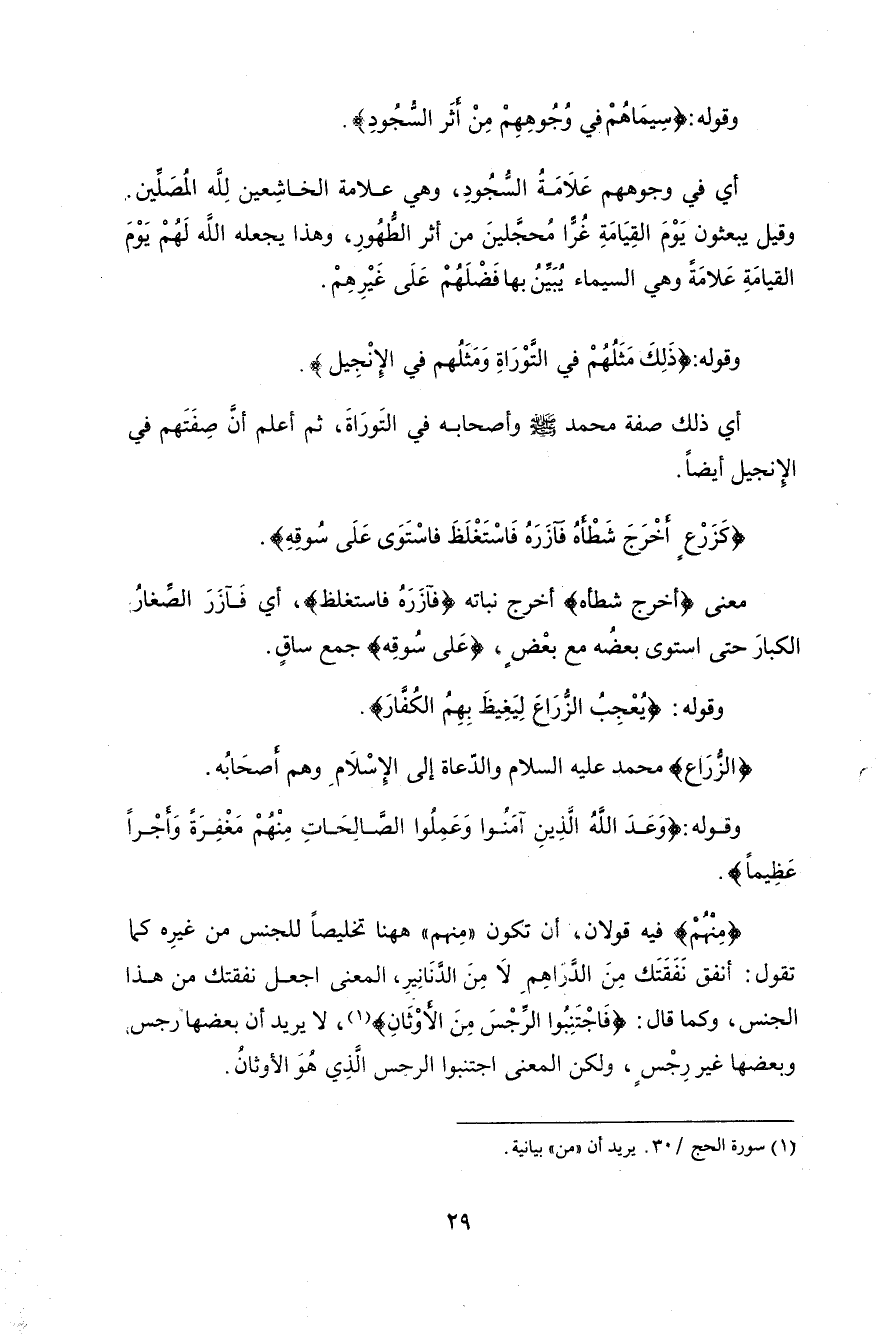 وقوله: ﴿سِيمَاهُمْ في وُجُوهِهِمْ مِنْ أَثَر السُّجُودِ﴾.
أي في وجوههم عَلَامَةُ السُّجُودِ، وهي علامة الخاشِعين لِلَّه المُصَلِّين.
وقيل يبعثون يَوْمَ القِيَامَةِ غُرًّا مُحجَّلينَ من أثر الطُّهُورِ، وهذا يجعله اللَّه لَهُمْ يَوْمَ
القيامَةِ عَلامَةً وهي السيماء يُبَيِّنُ بها فَضْلَهُمْ عَلَى غَيْرِهِمْ.
وقوله: ﴿ذَلِكَ مَثَلُهُمْ في التَّوْرَاةِ وَمَثَلُهم في الإِنْجِيل﴾.
أي ذلك صفة محمد ﷺ وأصحابه في التَورَاةَ، ثم أعلم أنَّ صِفَتَهم في
الإنجيل أيضاً.
﴿كَزَرْعٍ أَخْرَجَ شَطْأَهُ فَآزَرَهُ فَاسْتَغْلَظَ فاسْتَوَى عَلَى سُوقِهِ﴾.
معنى ﴿أخرج شطأه﴾ أخرج نباته ﴿فآزَرَهُ فاستغلظ﴾، أي فَآزَرَ الصِّغارُ
الكبارَ حتى استوى بعضُه مع بعْضٍ، ﴿عَلى سُوقِه﴾ جمع ساقٍ.
وقوله: ﴿يُعْجِبُ الزُّرَاعَ لِيَغِيظَ بِهِمُ الكُفَّارَ﴾.
﴿الزُّرَاع﴾ محمد عليه السلام والدّعاة إلى الإِسْلَامِ وهم أَصحَابُه.
وقوله: ﴿وَعَدَ اللَّهُ الَّذِينِ آمَنُوا وَعَمِلُوا الصَّالِحَاتِ مِنْهُمْ مَغْفِرَةً وَأَجْراً
عَظِيماً﴾.
﴿مِنْهُمْ﴾ فيه قولان، أن تكون «مِنهم» ههنا تخليصاً للجنس من غيرِه كما
تقول: أنفق نَفَقَتَك مِنَ الدَّرَاهِمِ لَا مِنَ الدَّنَانِيرِ، المعنى اجعل نفقتك من هذا
الجنس، وكما قال: ﴿فَاجْتَنِبُوا الرِّجْسَ مِنَ الأَوْثَانِ﴾(١)، لا يريد أن بعضها رجس
وبعضها غير رِجْسٍ، ولكن المعنى اجتنبوا الرجس الَّذِي هُوَ الأوثانُ.
(١) سورة الحج / ٣٠. يريد أن «من» بيانية.
٢٩